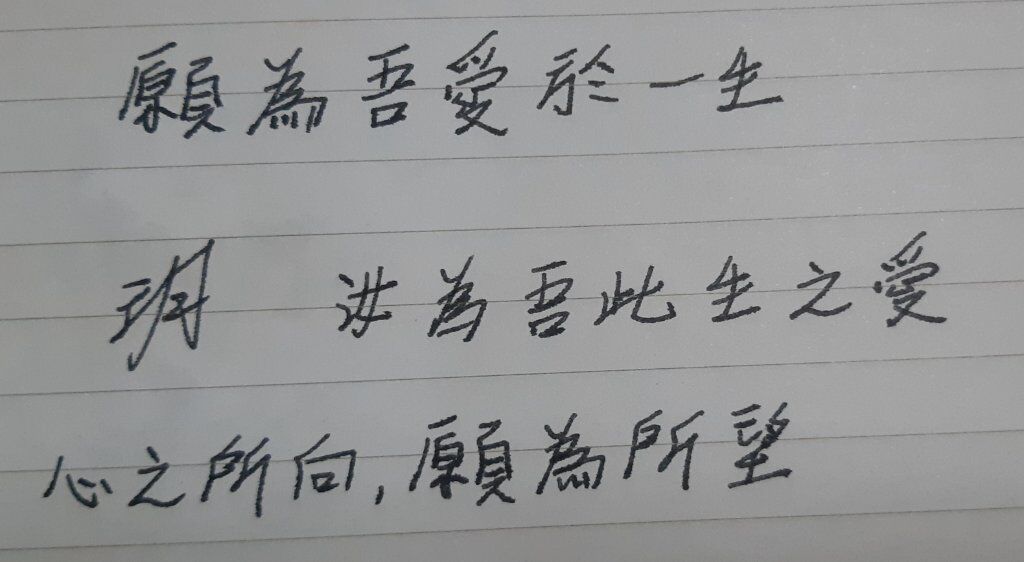 願為吾愛於一生
玥 汝為吾此生之愛
心之所向,願為所望